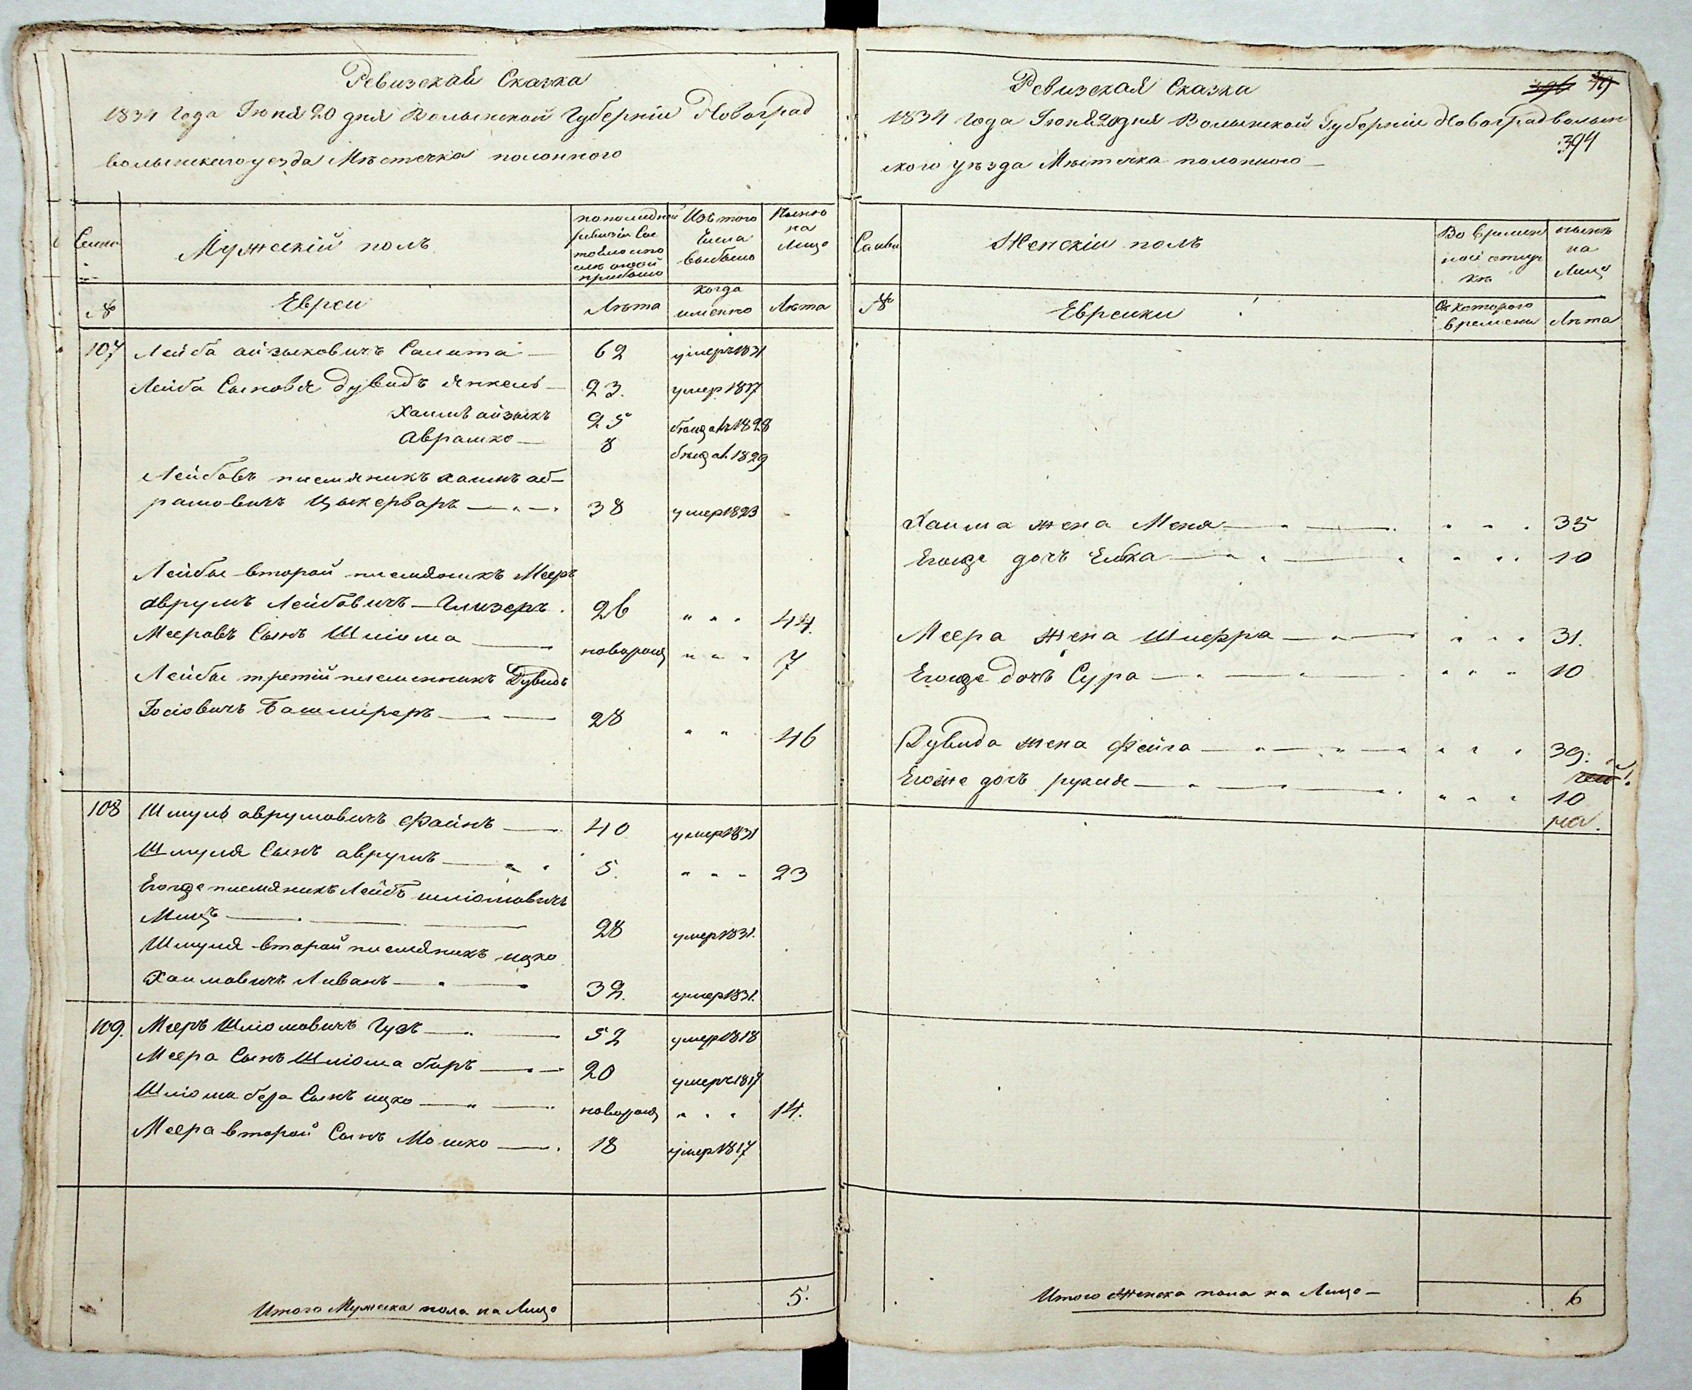 Ревизская Сказка
1834 Года Іюня 20 дня Волынской Губерніи Новоград
волынскаго уезда Мѣстечка полонного
Семьи
Мужескій полъ
по последней ревизіи Состояло и после оной прибыло
Изъ того числа выбыло
Ныне на Лицо
№
Евреи
Лѣта
когда именно
Лѣта
107 Лейба айзыковичъ Салита 62 умеръ 1831
Лейба Сыновя Дувидъ янкель 23. умер 1817
Хаимъ айзыкъ 25 1828
Аврашко 8 1829
Лейбовъ племяникъ хаимъ аб-
рамовичъ Цыкерваръ 38 умер 1823
Лейбы второй племяникъ Мееръ
аврумъ Лейбовичъ Глизеръ. 26 " " " 44.
Мееровъ Сынъ Шліома новорож " " " 7
Лейбы третій племянникъ Дувидъ
Іосіовичъ Башмиреръ 28 " " 46
108 Шмуль аврумовичъ Файнъ 40 умер 1831
Шмуля Сынъ аврумъ 5. " " " 23
Егожде племяникъ Лейбъ шліомовичъ
Мицъ 28 умер 1831.
Шмуля второй племяникъ ицко
Хаимовичъ Ливакъ 32. умер 1831.
109. Мееръ Шліомовичъ Гузъ 52 умер 1818
Меера Сынъ Шліома беръ 20 умеръ 1817
Шліома бера Сынъ ицко новорож " " " 14.
Меера второй Сынъ Мошко 18 умер 1817
Итого Мужеска пола на Лицо 5.
Ревизская Сказка
1834 года Іюня 20 дня Волынской Губерніи Новоградволын
ского уѣзда Мѣстечка полонного
394
Семьи
Женскій полъ
Во временной отлучкѣ
ныне на Лицо
№
Еврейки
Съ которого времени
Лѣта
Хаима жена Меня " " " 35
Егожде дочъ Еибка " " " 10
Меера жена Шифра " " " 31.
Егожде дочъ Сура " " " 10
Дувида жена Фейга " " " 39.
Егожде дочъ рухля " " " 10
Итого Женска пола на Лицо 6